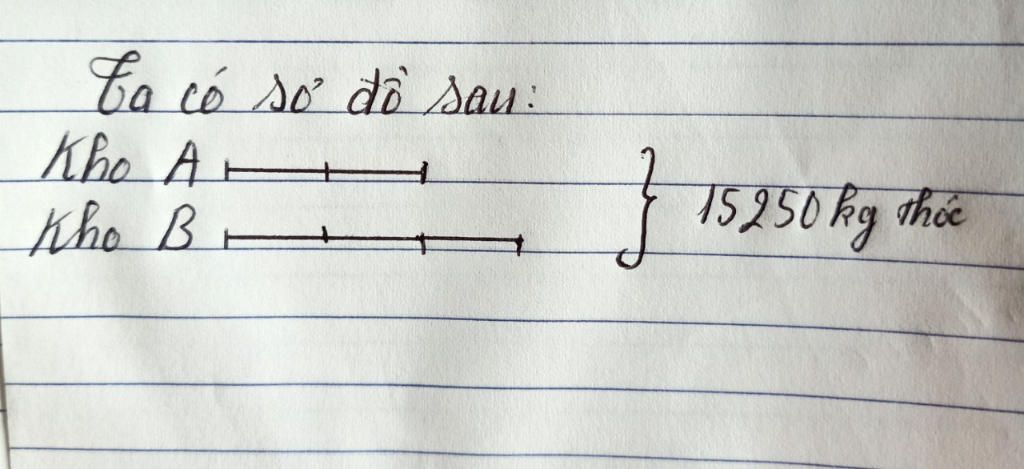 Ta có sơ đồ sau:
Kho A
Kho B
15250 kg thóc